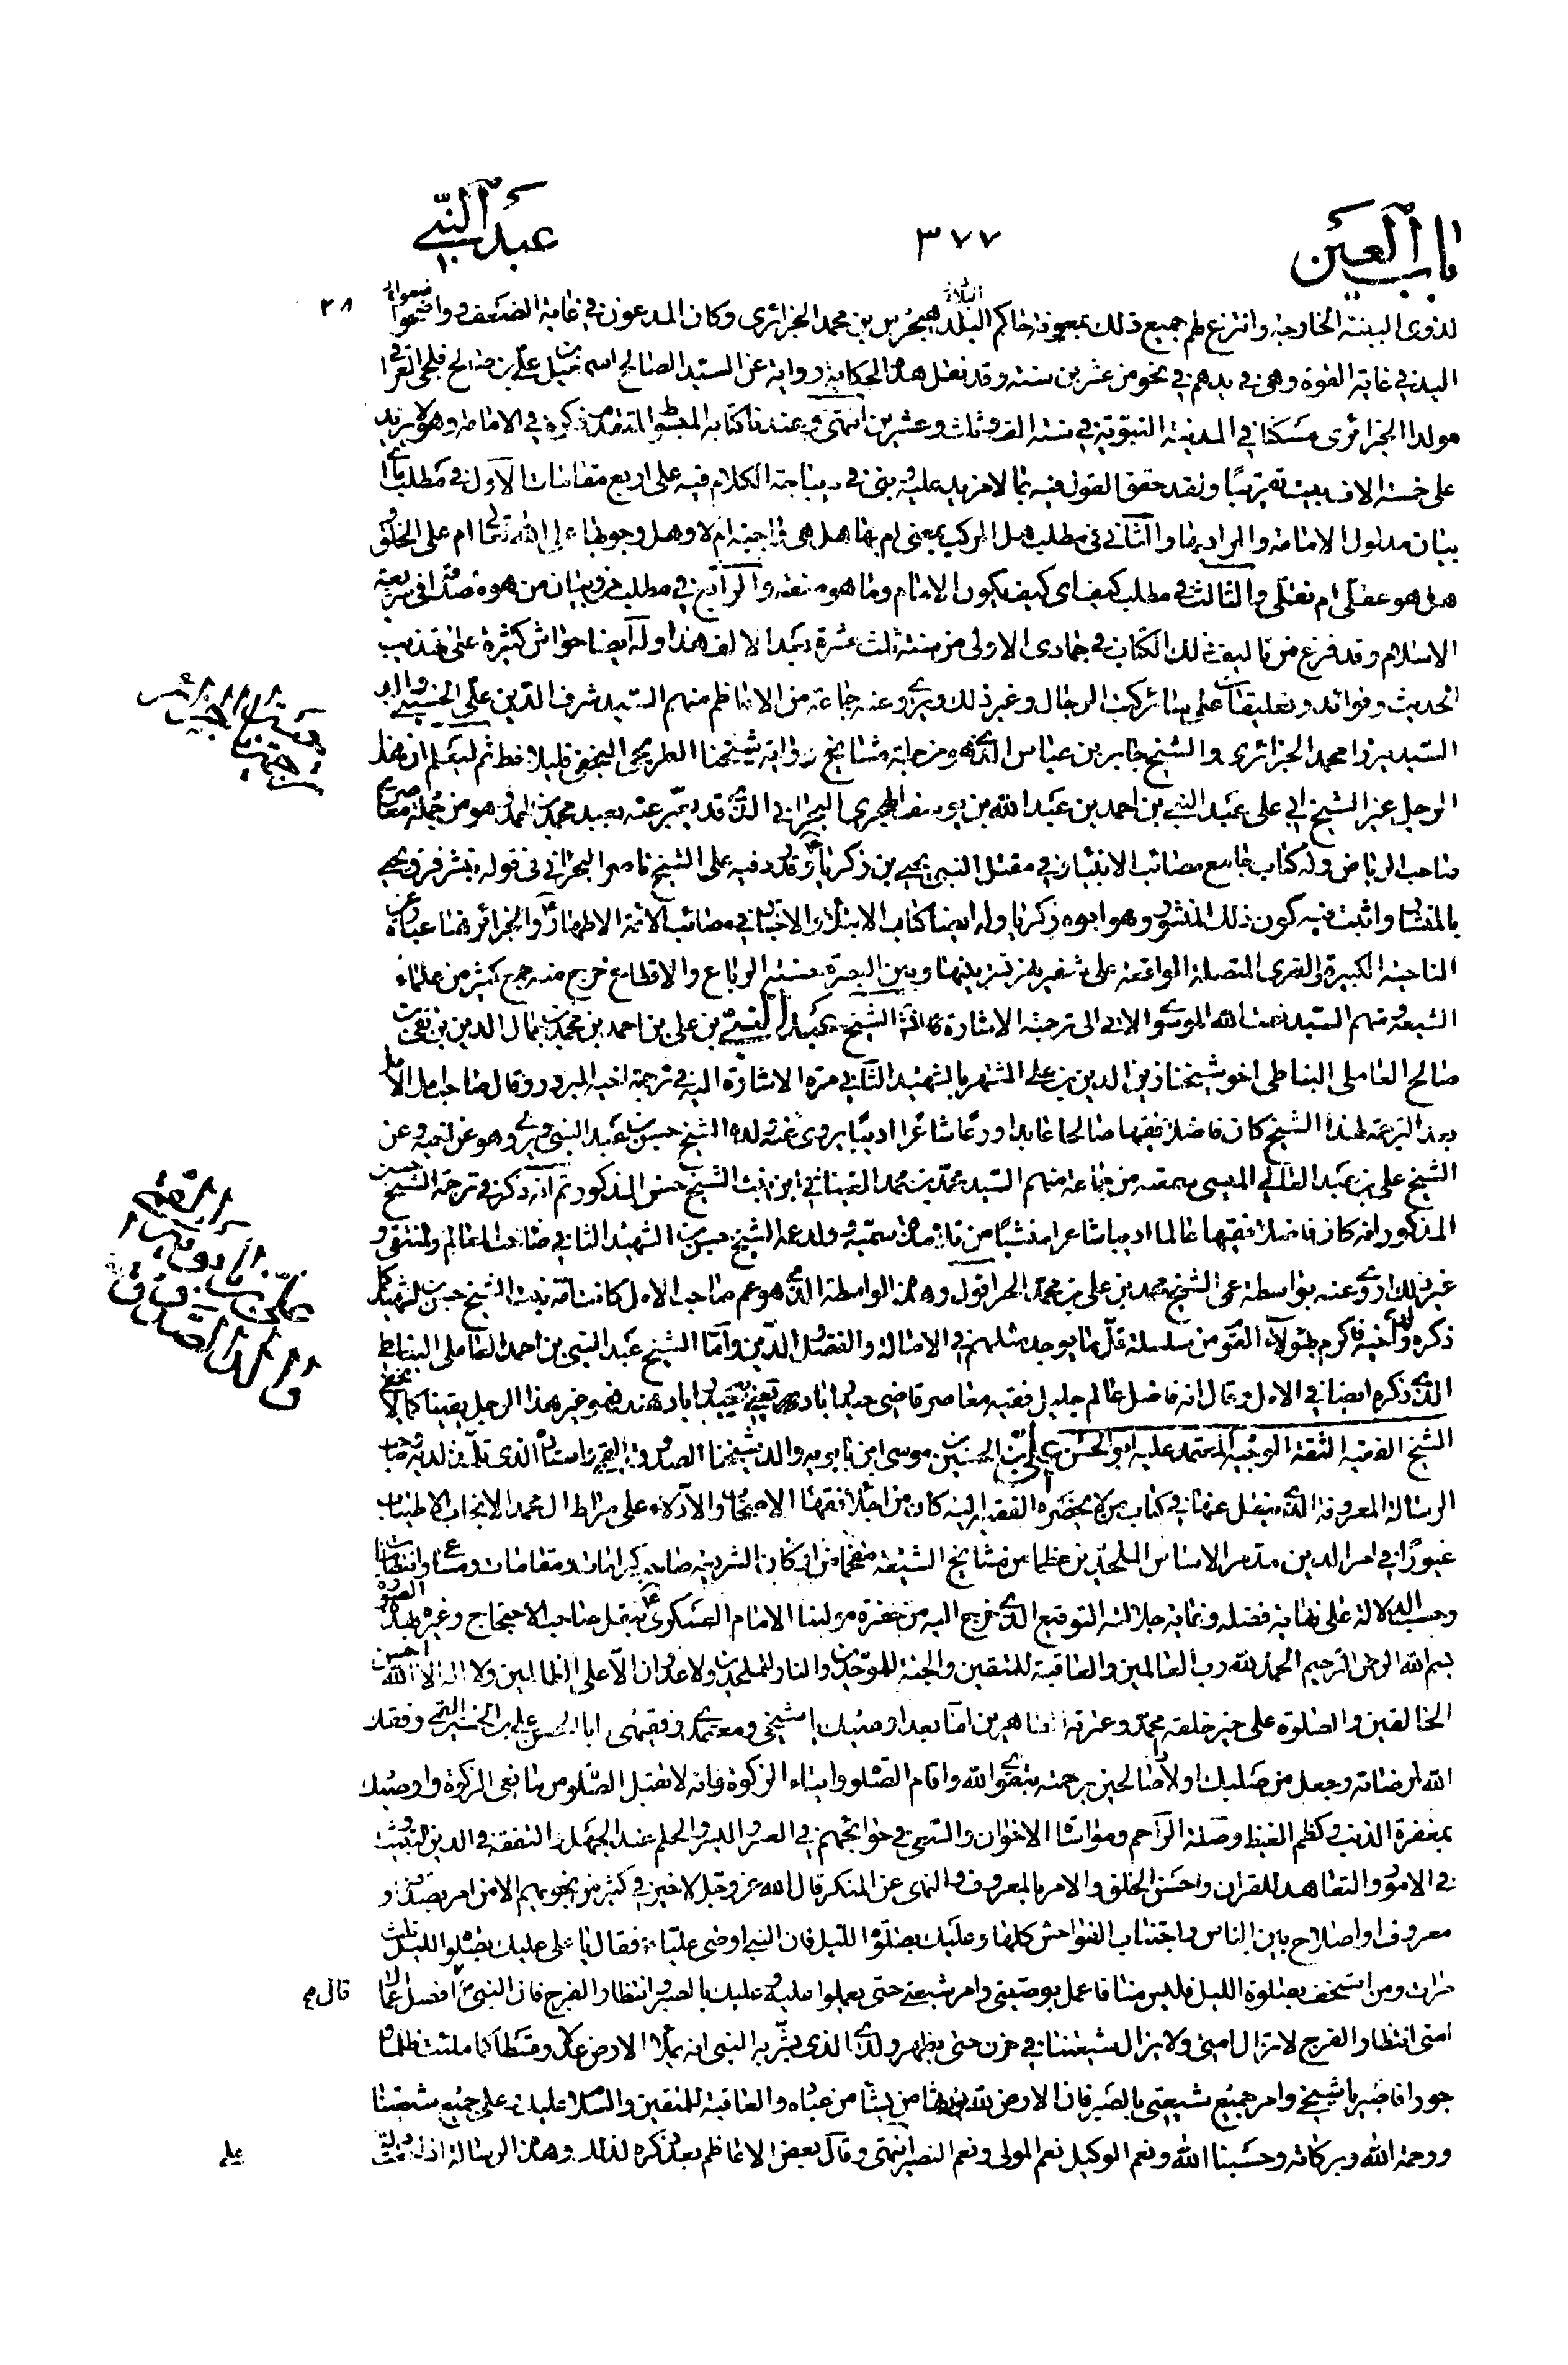 باب العين
٣٧٧
عبد النبي
لذوى البينة الخارجة وانتزع لهم جميع ذلك بمعونة حاكم البلد بن محمد الجزائرى وكان المدعون في غاية الضعف وواضعوا
اليد في غاية القوة وهى في يدهم في نحو من عشرين سنة وقد نقل هذه الحكاية رواية عن السيد الصالح اسمعيل بن على بن صالح فلجى
مولدا الجزائرى مسكنا في المدينة النبوية في سنة الف وثلث وعشرين انتهى وعندنا كتابه المبسوط المتقدم ذكره في الامامة وهو يزيد
على خمسة الاف بيت تقريبا ولقد حقق القول فيه بما لا مزيد عليه وبنى في ديباجة الكلام فيه على اربع مقامات الاول في مطلب ما
بيان مدلول الامامة والمراد بها والثاني في مطلب هل المركب يعنى ام بها هل هى واجبة ام لا وهل وجوبها على الله تعالى ام على الخلق
هل هو عقلى ام نقلى والثالث في مطلب كيف اى كيف يكون الامام وما هو صفته والرابع في مطلب من وبيان من هو متصد في شريعة
الاسلام وقد فرغ من تاليف ذلك الكتاب في جمادى الاولى من سنة ثلث عشرة بعد الالف هذا وله ايضا حواش كثيرة على تهذيب
الحديث وفوائد وتعليقات على سائر كتب الرجال وغير ذلك ويروى عنه جماعة من الاعاظم منهم السيد شرف الدين على الحسينى والد
السيد ميرزا محمد الجزائرى والشيخ جابر بن عباس النجفى ومن جملة مشايخ رواية شيخنا الطريحى النجفى قليلا فقط ثم ليعلم ان هذا
الرجل غير الشيخ ابي على عبد النبي بن احمد بن عبد الله بن يوسف الهجرى البحرانى الذى قد يعبر عنه بعبد محمد بن احمد وهو من جملة معاصرى
صاحب الرياض وله كتاب جامع مصائب الانبياء في مقتل النبي يحيى بن زكريا وقد رد فيه على الشيخ ناصر البحرانى في قوله بنشر فرق يحيى
بالمنشار واثبت فيه كون ذلك المنشور هو ابوه زكريا وله ايضا كتاب الابتلاء والاختبار في مصائب الائمة الاطهار والجزائر هنا عبارة عن
الناحية الكبيرة والقرى المتصلة الواقعة على شفير نهر تستر بينها وبين البصرة حسنة الرباع والاقطاع خرج منه جمع كثير من علماء
الشيعة ومنهم السيد نعمة الله الموسوى الاتى الى ترجمته الاشارة كالشيخ عبد النبي بن على بن احمد بن محمد بن جمال الدين بن تقى بن
صالح العاملى النباطى اخو شيخنا زين الدين بن على المشتهر بالشهيد الثاني مرة الاشارة اليه في ترجمة اخيه المبرور وقال صاحب امل الامل
بعد الترجمة لهذا الشيخ كان فاضلا فقيها صالحا عابدا ورعا شاعرا اديبا يروى عنه ولده الشيخ حسن بن عبد النبي ويروى هو عن اخيه وعن
الشيخ على بن عبد العالى الميسى سمعته من جماعة منهم السيد محمد بن محمد العينائى ابن بنت الشيخ حسن المذكور ثم انه ذكر في ترجمة الشيخ حسن
المذكور انه كان فاضلا فقيها عالما اديبا شاعرا منشيا من تلامذة سميه وولد عمه الشيخ حسن بن الشهيد الثاني صاحب المعالم والمنتقى و
غير ذلك اروى عنه بواسطة عمى الشيخ محمد بن على بن محمد الحر اقول وهذه الواسطة الذى هو عم صاحب الامل كانت امه بنت الشيخ حسن بن الشهيد كما
ذكره فاكرم بهؤلاء القوم من سلسلة قل ما يوجد مثلهم في الاصالة والفضل والدين واما الشيخ عبد النبي بن احمد العاملى النباطى
الذى ذكره ايضا في الامل وقال انه فاضل عالم جليل فقيه معاصر قاضى حيدر اباد يعنى به حيدر اباد هند فهو غير هذا الرجل يقينا كما لا يخفى
الشيخ الفقيه الثقة الوجيه المعتمد عليه ابو الحسن على بن الحسين بن موسى ابن بابويه والد شيخنا الصدوق القمى الذى
الرسالة المعروفة الذى ينقل عنها في كتاب من لا يحضره الفقيه كان من اجلاء فقهاء الاصحاب والادلاء على صراط ال محمد الانجاب الاطياب
غيورا في امر الدين مدمر الاساس الملحدين عظيما من مشايخ الشيعة مفخما من اركان الشريعة صاحب كرامات ومقامات ومساع وانتظامات
وحسب الدلالة على نهاية فضله وغاية جلالته التوقيع الذى خرج اليه من حضرة مولينا الامام العسكرى بنقل صاحب الاحتجاج وغيره بهذه الصورة
بسم الله الرحمن الرحيم الحمد لله رب العالمين والعاقبة للمتقين والجنة للموحدين والنار للملحدين ولا عدوان الا على الظالمين ولا اله الا الله احسن
الخالقين والصلوة على خير خلقه محمد وعترته الطاهرين اما بعد اوصيك يا شيخى ومعتمدى وفقيهى ابا الحسن على بن الحسين القمى وفقك
الله لمرضاته وجعل من صلبك اولادا صالحين برحمته بتقوى الله واقام الصلوة وايتاء الزكوة فانه لا تقبل الصلوة من مانعى الزكوة واوصيك
بمغفرة الذنب وكظم الغيظ وصلة الرحم ومواساة الاخوان والسعى في حوائجهم في العسر واليسر والحلم عند الجهل والتفقه في الدين والتثبت
في الامور والتعاهد للقران وحسن الخلق والامر بالمعروف والنهى عن المنكر قال الله عز وجل لا خير في كثير من نجويهم الا من امر بصدقة او
معروف او اصلاح بين الناس واجتناب الفواحش كلها وعليك بصلوة الليل فان النبي اوصى عليا فقال يا على عليك بصلوة الليل ثلث
مرات ومن استخف بصلوة الليل فليس منا فاعمل بوصيتى وامر شيعتى حتى يعملوا عليه وعليك بالصبر وانتظار الفرج فان النبي ص قال افضل اعمال
امتى انتظار الفرج لا تزال شيعتنا في حزن حتى يظهر ولدى الذى بشر به النبي انه يملأ الارض عدلا وقسطا كما ملئت ظلما و
جورا فاصبر يا شيخى وامر جميع شيعتى بالصبر فان الارض لله يورثها من يشاء من عباده والعاقبة للمتقين والسلام عليك وعلى جميع شيعتنا
ورحمة الله وبركاته وحسبنا الله ونعم الوكيل نعم المولى ونعم النصير انتهى وقال بعض الاعاظم بعد ذكره لذلك وهذه الرسالة